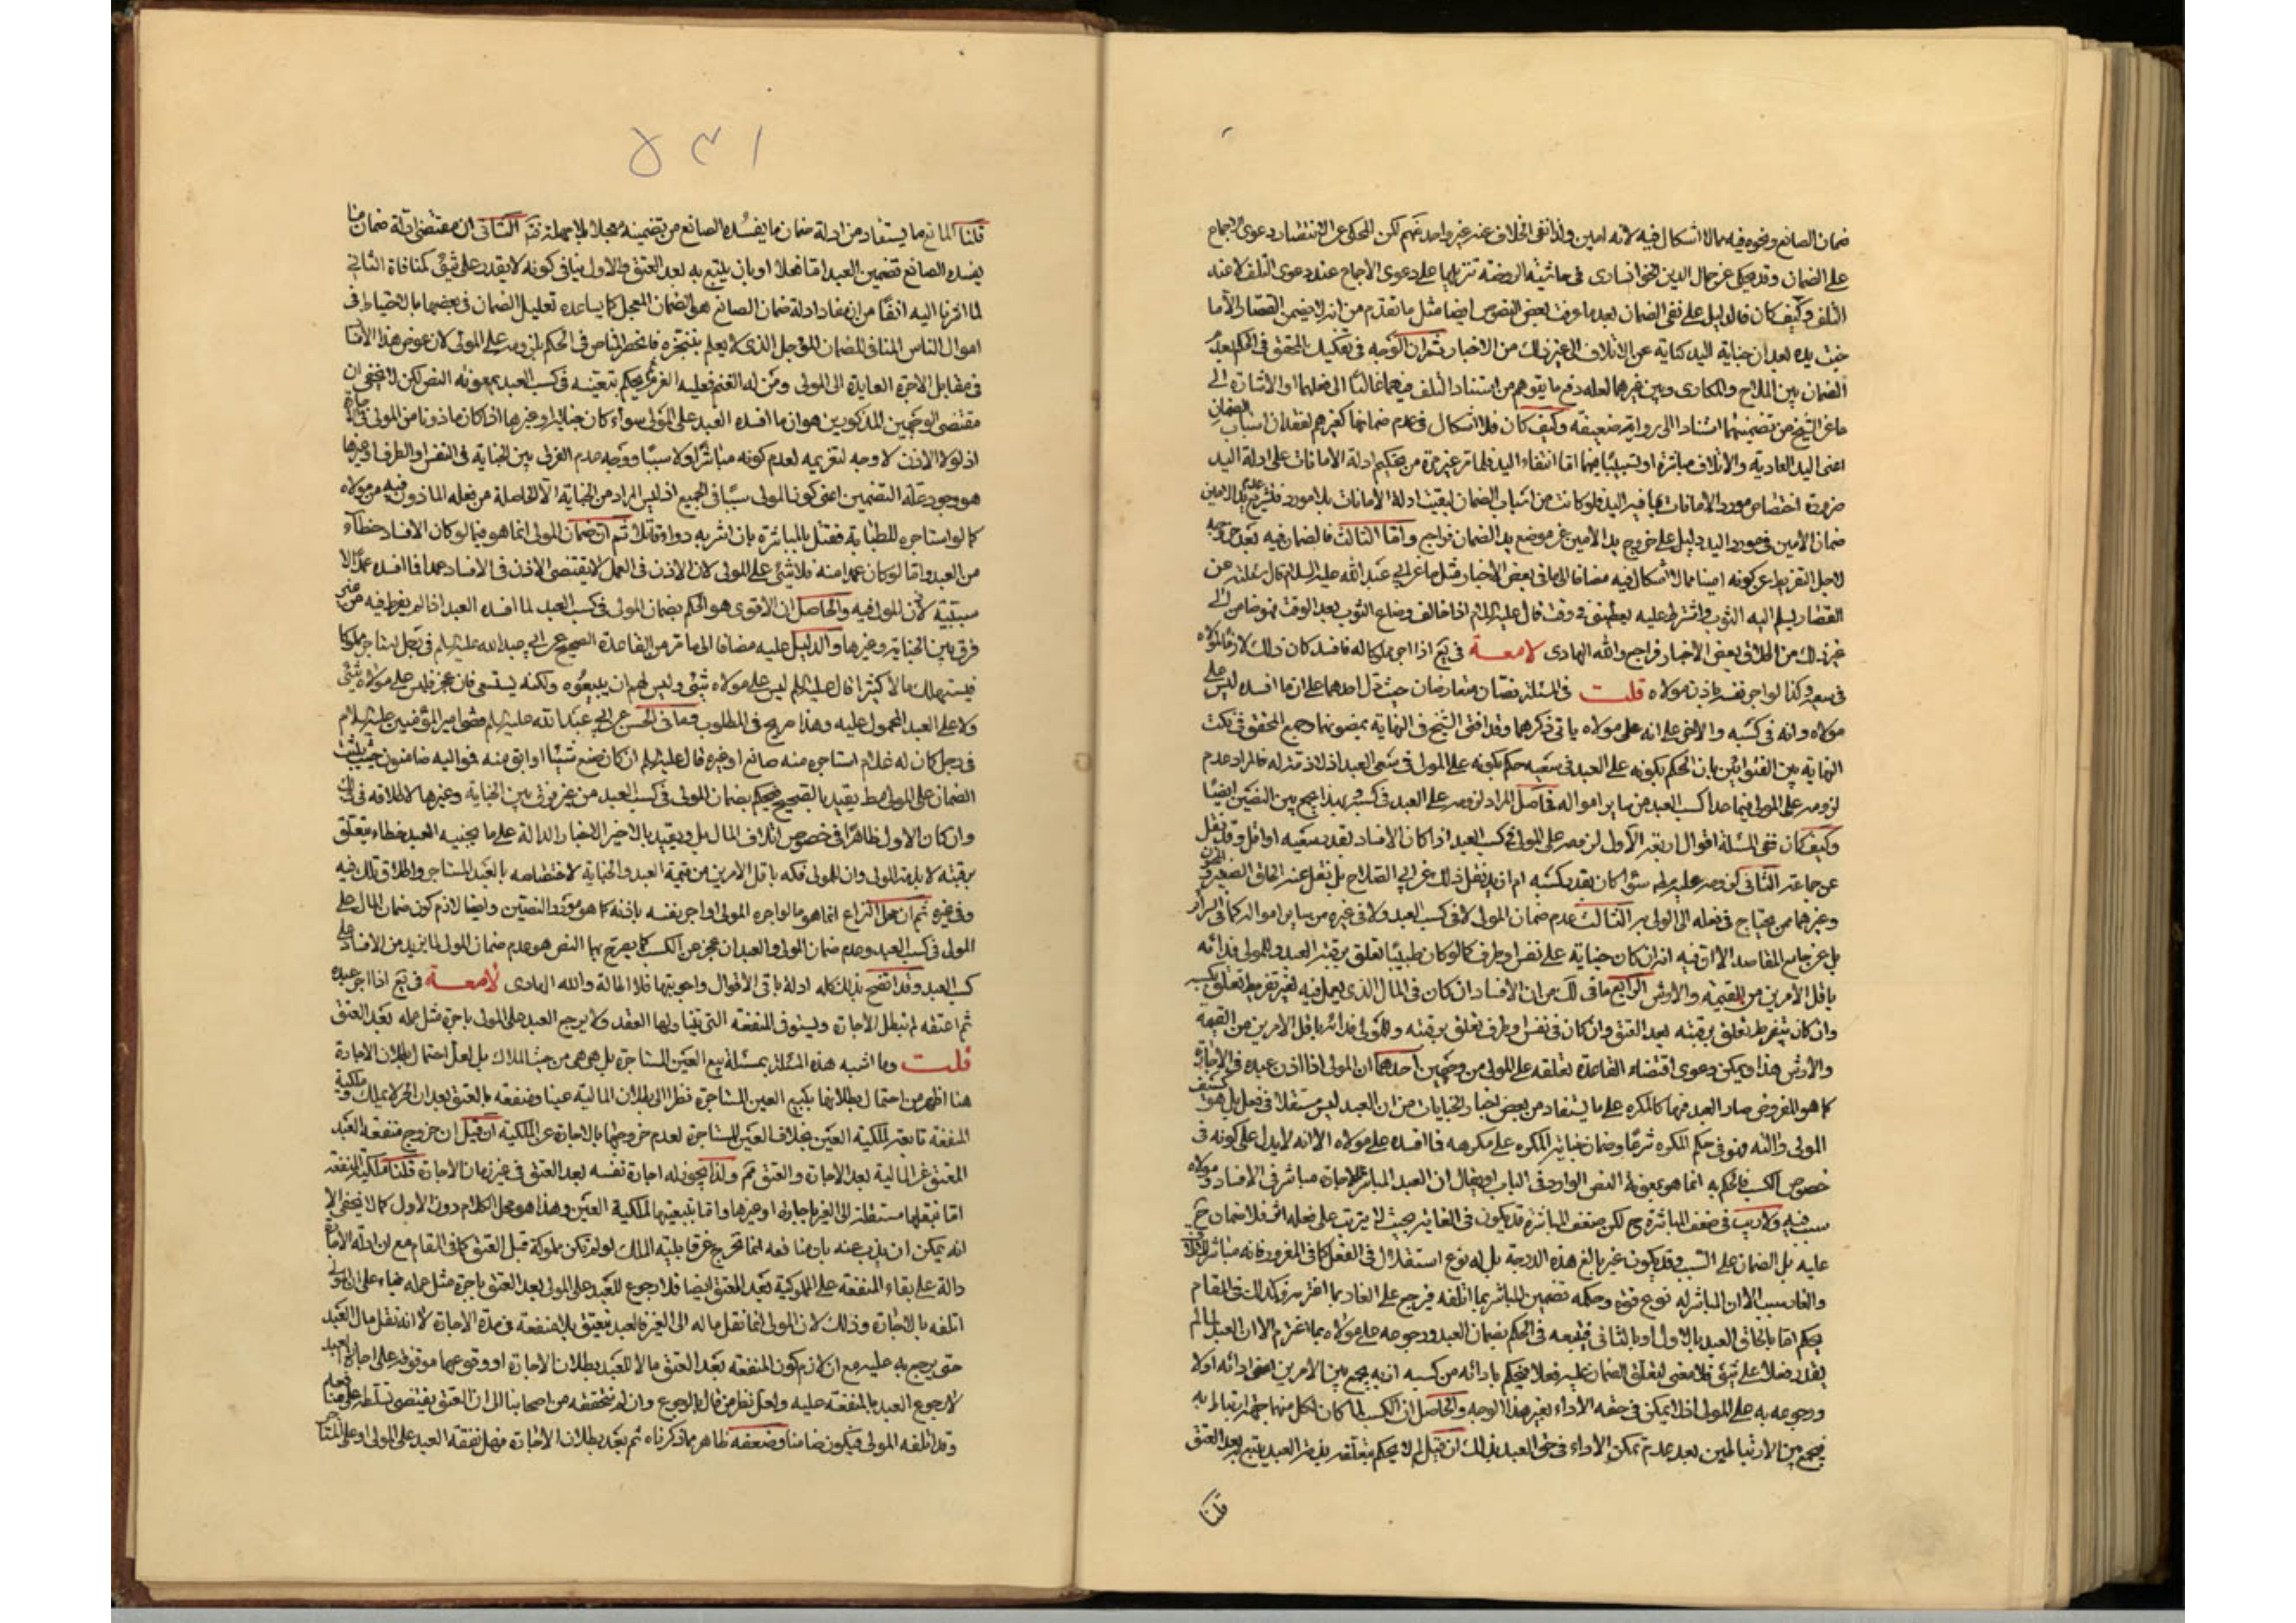 ضمان الصانع ونحوه فيه مما لا اشكال فيه لانه امين ولذا نفى الخلاف عنه غير واحد منهم لكن المحكى عن الانتصار دعوى الاجماع
على الضمان وقد حكى عن جمال الدين الخوانسارى فى حاشية الروضة تنزيلها على دعوى الاجماع عند دعوى التلف لا عند
التلف وكيف كان فالدليل على نفى الضمان بعد ما عرفت بعض النصوص ايضا مثل ما تقدم من انه لا يضمن القصار الا ما
جنت يده بعد ان جناية اليد كناية عن الاتلاف الى غير ذلك من الاخبار ثم ان الوجه فى تفكيك المحقق فى الحكم بعدم
الضمان بين الملاح والمكارى وبين غيرهما لعله دفع ما يتوهم من استناد التلف فيهما غالبًا الى فعلهما او الاشارة الى
ما عن الشيخ من تضمينهما استنادا الى رواية ضعيفة وكيف كان فلا اشكال فى عدم ضمانهما كغيرهم لفقدان اسباب الضمان
اعنى اليد العادية والاتلاف مباشرة او تسبيبًا فيهما اما انتفاء اليد فلما مر غير مرة من تحكيم ادلة الامانات على ادلة اليد
ضرورة اختصاص مورد الامانات بما فيه اليد فلو كانت من اسباب الضمان لبقيت ادلة الامانات بلا مورد
ضمان الامين فى مورد اليد دليل على خروج يد الامين عن موضع يد الضمان فراجع واما الثالث فالضمان فيه بعد خروجه
لاجل التفريط عن كونه امينا مما لا اشكال فيه مضافا الى ما فى بعض الاخبار مثل ما عن ابى عبد الله عليه السلام قال سئلته عن
القصار يسلم اليه الثوب واشترط عليه يعطينى فى وقت قال عليه السلام اذا خالف وضاع الثوب بعد الوقت فهو ضامن الى
غير ذلك من اطلاق بعض الاخبار فراجع والله الهادى لامعة فى يع اذا اجر مملوكا له فافسد كان ذلك لازما لمولاه
فى سعيه وكذا لو اجر نفسه باذن مولاه قلت فى المسئلة نصان متعارضان حيث دل احدهما على ان ما افسده ليس على
مولاه وانه فى كسبه والاخر على انه على مولاه ياتى ذكرهما وقد افتى الشيخ فى النهاية بمضمونهما وجمع المحقق فى نكت
النهاية بين الفتوائين بان الحكم بكونه على العبد فى سعيه حكم بكونه على المولى فى سعى العبد اذ لا ذمة له فالمراد عدم
لزومه على المولى فيما عدا كسب العبد من ساير امواله فحاصل المراد لزومه على العبد فى كسبه وبهذا يجمع بين النصين ايضا
وكيف كان ففى المسئلة اقوال اربعة الاول لزومه على المولى فى كسب العبد اذا كان الافساد بقدر سعيه او اقل وقد نقل
عن جماعة الثانى لزومه عليه مط سواء كان بقدر كسبه ام ازيد نقل ذلك عن ابى الصلاح بل نقل عنه الحاق الصغير
وغيرهما ممن يحتاج فى فعله الى الولى به الثالث عدم ضمان المولى لا فى كسب العبد ولا فى غيره من ساير امواله كما فى السرائر
بل عن جامع المقاصد الا ان فيه انه ان كان جناية على نفس او طرف كما لو كان طبيبًا تعلق برقبة العبد وللمولى فدائه
باقل الامرين من القيمة والارش الرابع ما فى لك من ان الافساد ان كان فى المال الذى يعمل فيه لغير تفريط تعلق بكسبه
وان كان بتفريط تعلق برقبته بعد العتق وان كان فى نفس او طرف تعلق برقبته وللمولى فدائه باقل الامرين من القيمة
والارش هذا ويمكن دعوى اقتضاء القاعدة تعلقه على المولى من وجهين احدهما ان المولى اذا اذن عبده فى الاجارة
كما هو المفروض صار العبد فيها كالمكره على ما يستفاد من بعض اخبار الجنايات من ان العبد ليس مستقلا فى فعل بل هو كسيف
المولى والته فهو فى حكم المكره شرعًا وضمان جناية المكره على مكرهه فما افسده على مولاه الا انه لا يدل على كونه فى
خصوص الكسب فالحكم به انما هو بمعونة النص الوارد فى الباب او يقال ان العبد المباشر للاجارة مباشر فى الافساد ومولاه
سبب فيه ولا ريب فى ضعف المباشرة مع لكن ضعف المباشرة قد يكون فى الغاية بحيث لا يترتب على فعله اثر فلا ضمان ح
عليه بل الضمان على السبب وقد يكون غير بالغ هذه الدرجة بل له نوع استقلال فى الفعل كما فى المغرور فانه مباشر للاتلاف
والغار سبب الا ان المباشر له نوع قوة وحكمه تضمين المباشر بما اتلفه فيرجع على الغار بما اغترم وكذلك فى المقام
يحكم اما بالحاق العبد بالاول او بالثانى فيتبعه فى الحكم بضمان العبد ورجوعه على مولاه بما اغترم الا ان العبد لما لم
يقدر فعلا على شئ فلا معنى لتعلق الضمان عليه فعلا فيحكم بادائه من كسبه اذ به يجمع بين الامرين اعنى ادائه اولا
ورجوعه به على المولى اذ لا يمكن فى حقه الاداء بغير هذا الوجه والحاصل ان الكسب لما كان لكل منهما جهة ارتباط به
فيجمع بين الارتباطين بعد عدم تمكن الاداء فى حق العبد بذلك ان قيل لم لا يحكم بتعلقه بذمة العبد يتبع به بعد العتق
قلنا
١٣٥
قلنا المانع ما يستفاد من ادلة ضمان ما يفسده الصانع من تضمينه معجلا بلا مهلة ثمة الثانى ان مقتضى ادلة ضمان ما
يفسده الصانع تضمين العبد اما فعلا او بان يتبع به بعد العتق والاول ينافى كونه لا يقدر على شئ كمنافاة الثانى
لما اشرنا اليه انفًا من ان مفاد ادلة ضمان الصانع هو الضمان المعجل كما يساعده تعليل الضمان فى بعضها بالاحتياط فى
اموال الناس المنافى للضمان المؤجل الذى لا يعلم بتنجزه فانحصر المناص فى الحكم بلزومه على المولى لان عوض هذا الافساد
فى مقابل الاجرة العايدة الى المولى ومن له الغنم فعليه الغرم ثم يحكم بتعينه فى كسب العبد بمعونة النص لكن لا يخفى ان
مقتضى الوجهين المذكورين هو ان ما افسده العبد على المولى سواء كان جناية او غيرها اذا كان ماذونا من المولى فى الاجارة
اذ لولا الاذن لا وجه لتغريمه لعدم كونه مباشرًا ولا سببًا ووجه عدم الفرق بين الجناية فى النفس او الطرف او غيرها
هو وجود علة التضمين اعنى كون المولى سببًا فى الجميع اذ ليس المراد من الجناية الا الحاصلة من فعله الماذون فيه من مولاه
كما لو استاجره للطبابة فقتل بالمباشرة بان اشربه دواء قاتلا ثم ان ضمان المولى انما هو فيما لو كان الافساد خطاء
من العبد واما لو كان عمدا منه فلا شئ على المولى لان الاذن فى العمل لا يقتضى الاذن فى الافساد عمدا فما افسده عمدا لا
سببية لاذن المولى فيه والحاصل ان الاقوى هو الحكم بضمان المولى فى كسب العبد لما افسده العبد اذا لم يفرط فيه من غير
فرق بين الجناية وغيرها والدليل عليه مضافا الى ما مر من القاعدة الصحيح عن ابى عبد الله عليه السلام فى رجل استاجر مملوكا
فيستهلك مالا كثيرا قال عليه السلام ليس على مولاه شئ وليس لهم ان يبيعوه ولكنه يستسعى فان عجز فليس على مولاه شئ
ولا على العبد المحمول عليه وهذا صريح فى المطلوب فما فى الحسن عن ابى عبد الله عليه السلام قضى امير المؤمنين عليه السلام
فى رجل كان له غلام استاجره منه صانع او غيره قال عليه السلام ان كان ضيع شيئًا او ابق منه فمواليه ضامنون حيث يثبت
الضمان على المولى مط يقيد بالصحيح فيحكم بضمان المولى فى كسب العبد من غير فرق بين الجناية وغيرها لاطلاقه فى ذلك
وان كان الاول ظاهرًا فى خصوص اتلاف المال بل ويقيد بالاخير الاخبار الدالة على ما يجنيه العبد خطاء يتعلق
برقبته لا بذمة المولى وان للمولى فكه باقل الامرين من قيمة العبد والجناية لاختصاصه بالعبد المستاجر واطلاق تلك فيه
وفى غيره ثم ان محل النزاع انما هو ما لو اجره المولى او اجر نفسه باذنه كما هو مورد النصين وايضا لازم كون ضمان المال على
المولى فى كسب العبد وعدم ضمان المولى والعبد ان عجز عن الكسب كما يصرح بها النص هو عدم ضمان المولى لما يزيد من الافساد على
كسب العبد وقد اتضح بذلك كله ادلة باقى الاقوال واجوبتها فلا اطالة والله الهادى لامعة فى يع اذا اجر عبده
ثم اعتقه لم تبطل الاجارة ويستوفى المنفعة التى تناولها العقد ولا يرجع العبد على المولى باجرة مثل عمله بعد العتق
قلت وما اشبه هذه المسئلة بمسئلة بيع العين المستاجرة بل هى هى من حيث الملاك بل لعل احتمال بطلان الاجارة
هنا اظهر من احتمال بطلانها ببيع العين المستاجرة نظرا الى بطلان المالية عينا ومنفعة بالعتق بعد ان الحر لا يملك وملكية
المنفعة تابعة لملكية العين بخلاف العين المستاجرة لعدم خروجها بالاجارة عن الملكية ان قيل ان خروج منفعة العبد
المعتق عن المالية بعد الاجارة والعتق مم ولذا يجوز له اجارة نفسه بعد العتق فى غير زمان الاجارة قلنا ملكية المنفعة
اما نقلها مستقلة الى الغير باجارة او غيرها واما بتبعيتها لملكية العين وهذا هو محل الكلام دون الاول كما لا يخفى الا
انه يمكن ان يذب عنه بان منافعه انما تخرج عن قابلية الملك لو لم تكن مملوكة قبل العتق كما فى المقام مع ان ادلة الاجارة
دالة على بقاء المنفعة على المملوكية بعد العتق ايضا فلا رجوع للعبد على المولى بعد العتق باجرة مثل عمله بناء على ان المولى
اتلفه بالاجارة وذلك لان المولى انما نقل ماله الى الغير فالعبد ينعتق بلا منفعة فى مدة الاجارة لا انه نقل مال العبد
حتى يرجع به عليه مع ان لازم كون المنفعة بعد العتق مالا للعبد بطلان الاجارة او وقوعها موقوفة على اجازة العبد
لا رجوع العبد بالمنفعة عليه ولعل نظر من قال بالرجوع وان لم نتحققه من اصحابنا الى ان العتق يقتضى تسلطه على منافعه
وقد اتلفه المولى فيكون ضامنا وضعفه ظاهر مما ذكرناه ثم بعد بطلان الاجارة فهل نفقة العبد على المولى او على المستاجر